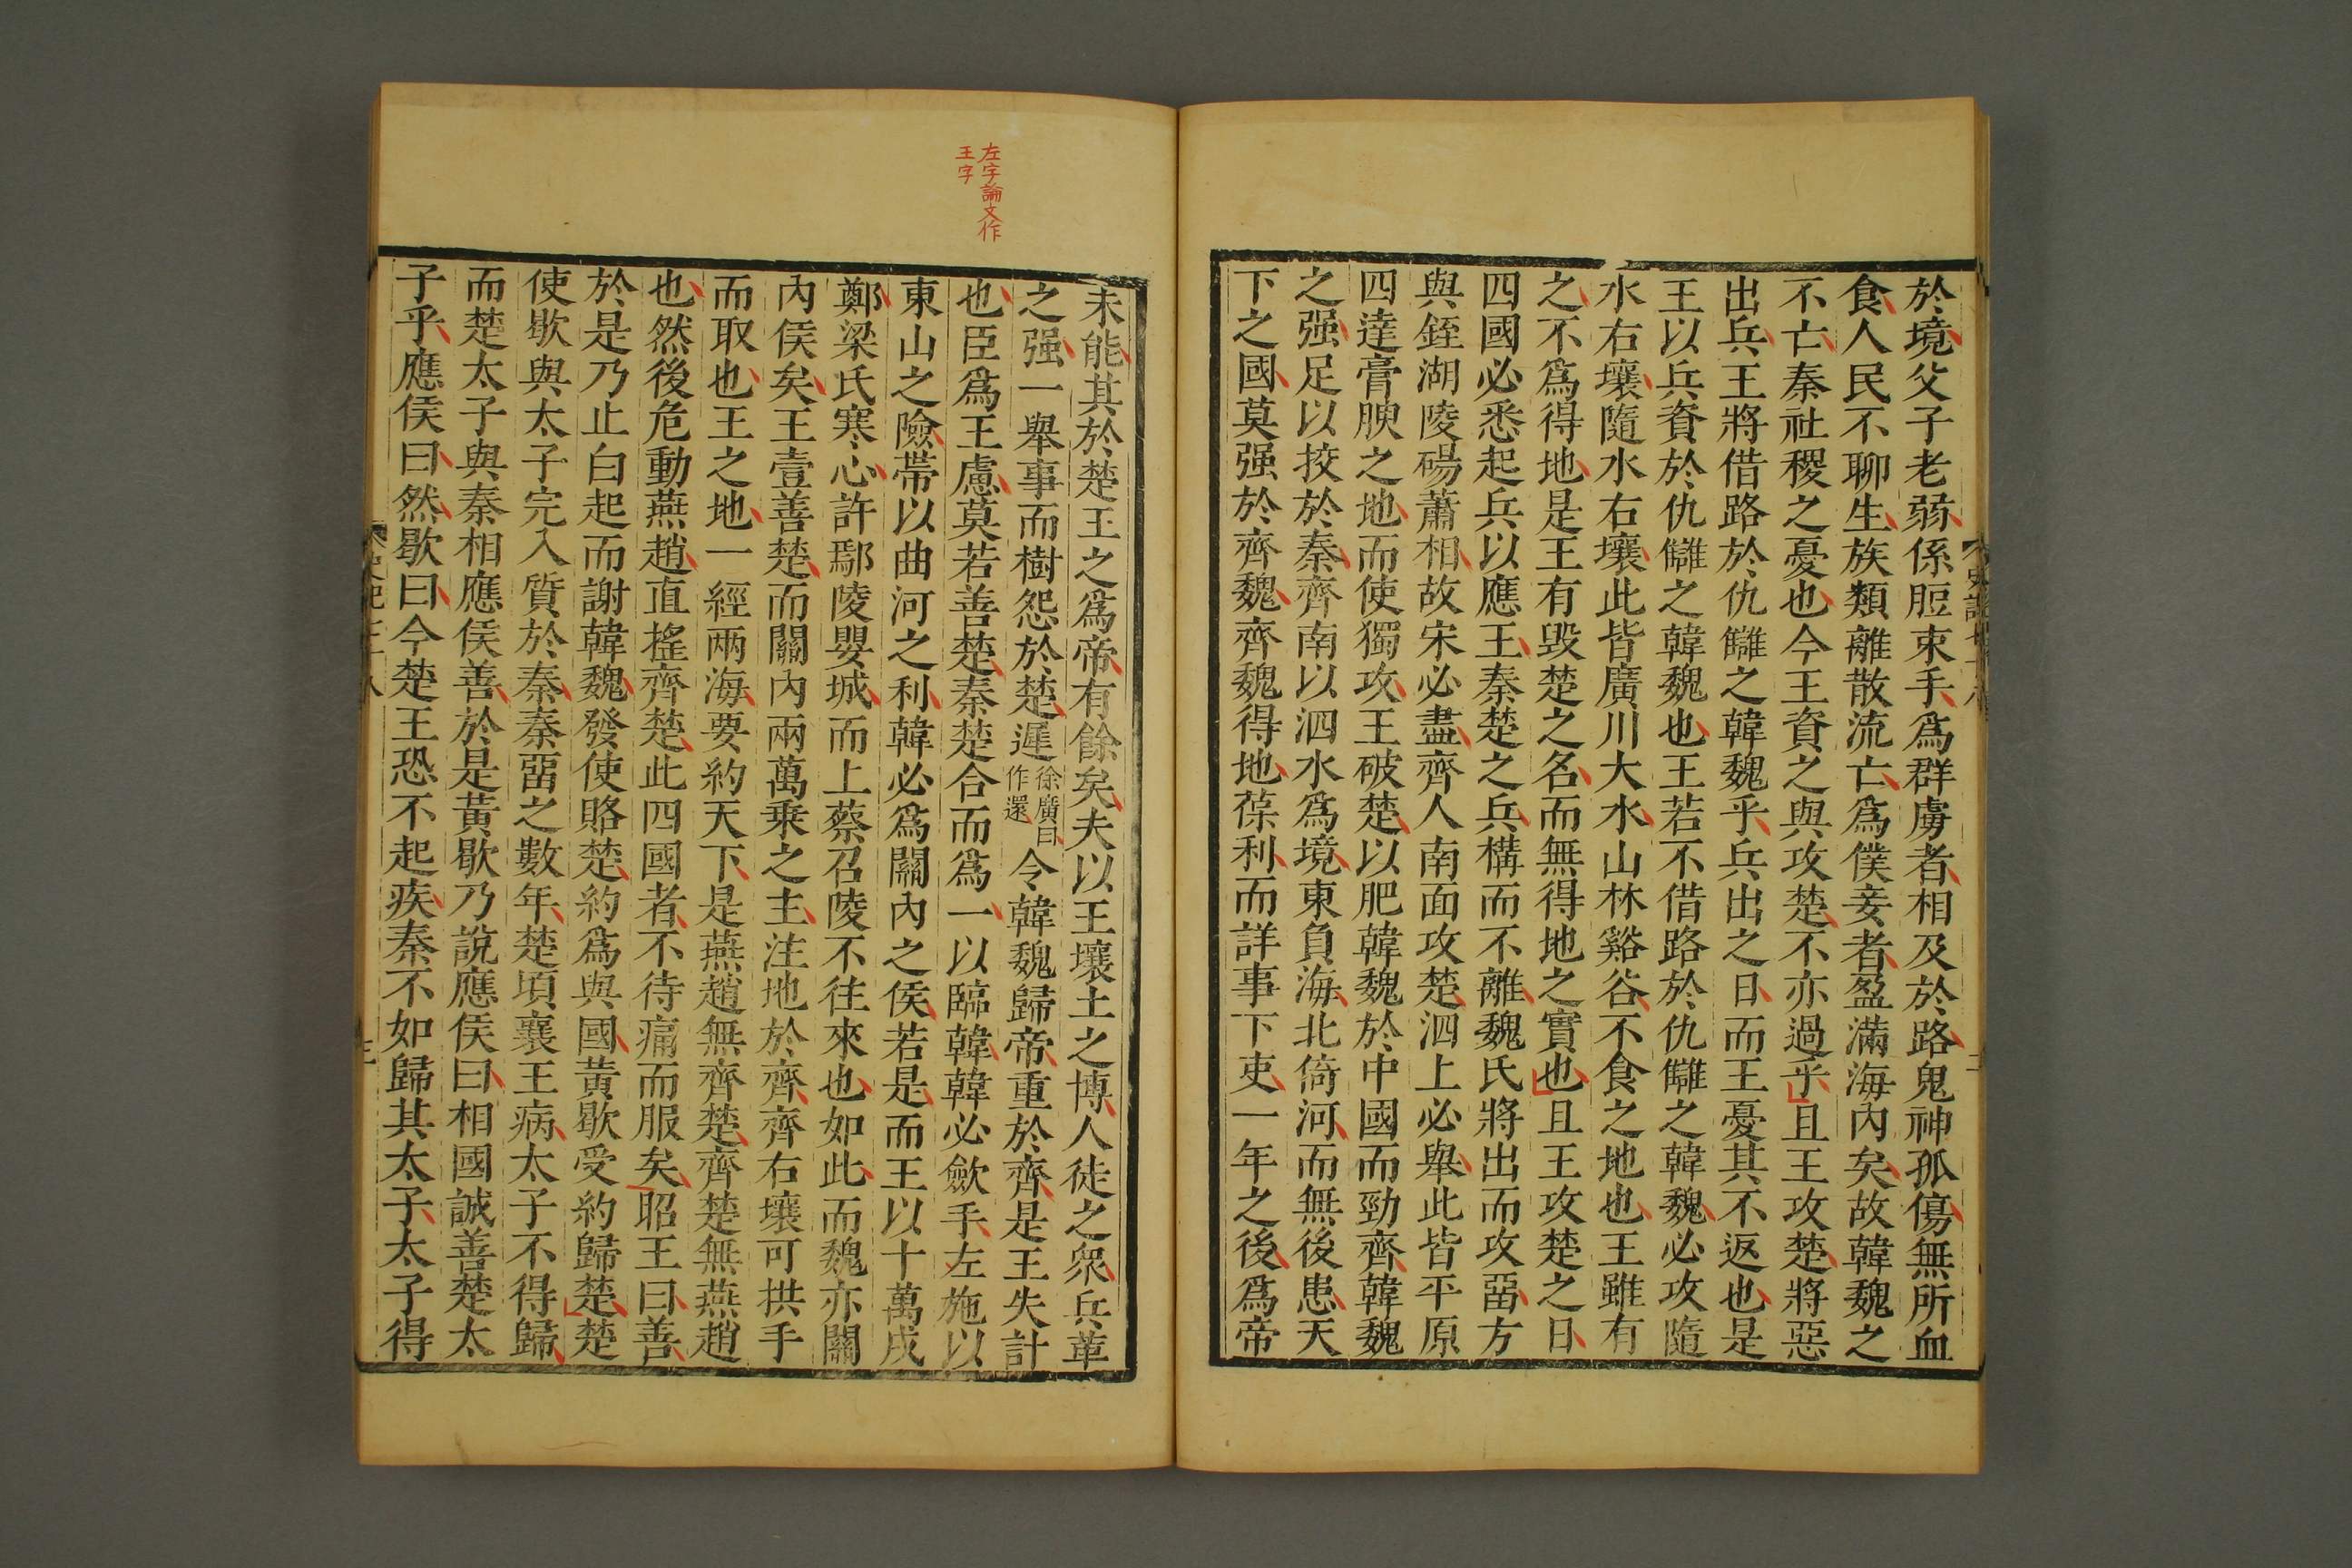 於境父子老弱係脰束手爲群虜者相及於路鬼神孤傷無所血
食人民不聊生族類離散流亡爲僕妾者盈滿海內矣故韓魏之
不亡秦社稷之憂也今王資之與攻楚不亦過乎且王攻楚將惡
出兵王將借路於仇讎之韓魏乎兵出之日而王憂其不返也是
王以兵資於仇讎之韓魏也王若不借路於仇讎之韓魏必攻隨
水右壤隨水右壤此皆廣川大水山林谿谷不食之地也王雖有
之不爲得地是王有毀楚之名而無得地之實也且王攻楚之日
四國必悉起兵以應王秦楚之兵構而不離魏氏將出而攻畱方
與銍湖陵碭蕭相故宋必盡齊人南面攻楚泗上必舉此皆平原
四達膏腴之地而使獨攻王破楚以肥韓魏於中國而勁齊韓魏
之强足以挍於秦齊南以泗水爲境東負海北倚河而無後患天
下之國莫强於齊魏齊魏得地葆利而詳事下吏一年之後爲帝
左字論文作
王字
未能其於楚王之爲帝有餘矣夫以王壤土之博人徒之衆兵革
之强一舉事而樹怨於楚遲
徐廣曰
作還
令韓魏歸帝重於齊是王失計
也臣爲王慮莫若善楚秦楚合而爲一以臨韓韓必歛手左施以
東山之險帶以曲河之利韓必爲關內之侯若是而王以十萬戍
鄭梁氏寒心許鄢陵嬰城而上蔡召陵不往來也如此而魏亦關
內侯矣王壹善楚而關內兩萬乗之主注地於齊齊右壤可拱手
而取也王之地一經兩海要約天下是燕趙無齊楚齊楚無燕趙
也然後危動燕趙直搖齊楚此四國者不待痛而服矣昭王曰善
於是乃止白起而謝韓魏發使賂楚約爲與國黃歇受約歸楚楚
使歇與太子完入質於秦秦畱之數年楚頃襄王病太子不得歸
而楚太子與秦相應侯善於是黃歇乃說應侯曰相國誠善楚太
子乎應侯曰然歇曰今楚王恐不起疾秦不如歸其太子太子得